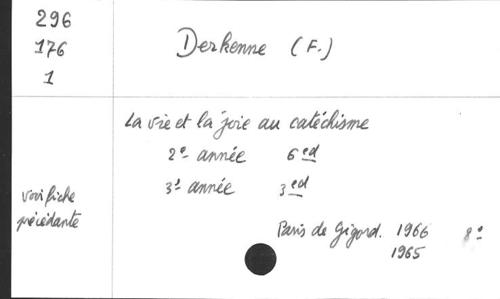 296
176
1
Derkenne (F.)
La vie et la joie au catéchisme
2e année 6 ed
3e année 3 ed
voir fiche
précédante
Paris de Gigord. 1966 8°
1965